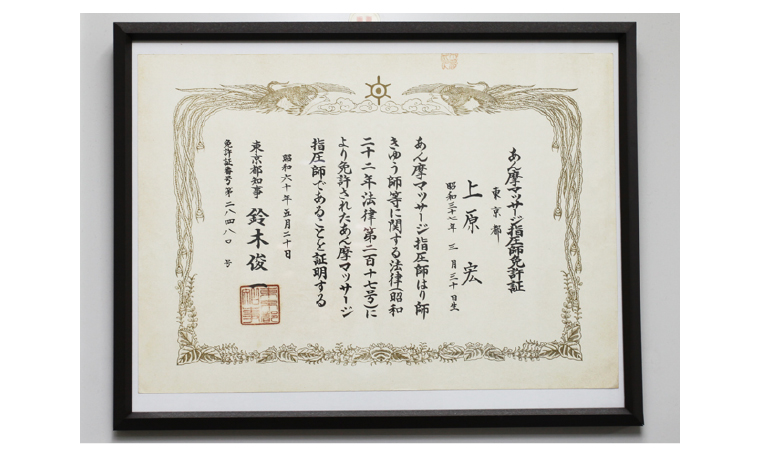 あん摩マッサージ指圧師免許証
東京都
上原宏
昭和三十七年 三月三十日生
あん摩マッサージ指圧師はり師
きゆう師等に関する法律(昭和
二十二年法律第二百十七号)に
より免許されたあん摩マッサージ
指圧師であることを証明する
昭和六十年五月二十日
東京都知事 鈴木俊一
免許証番号第二八四八〇号